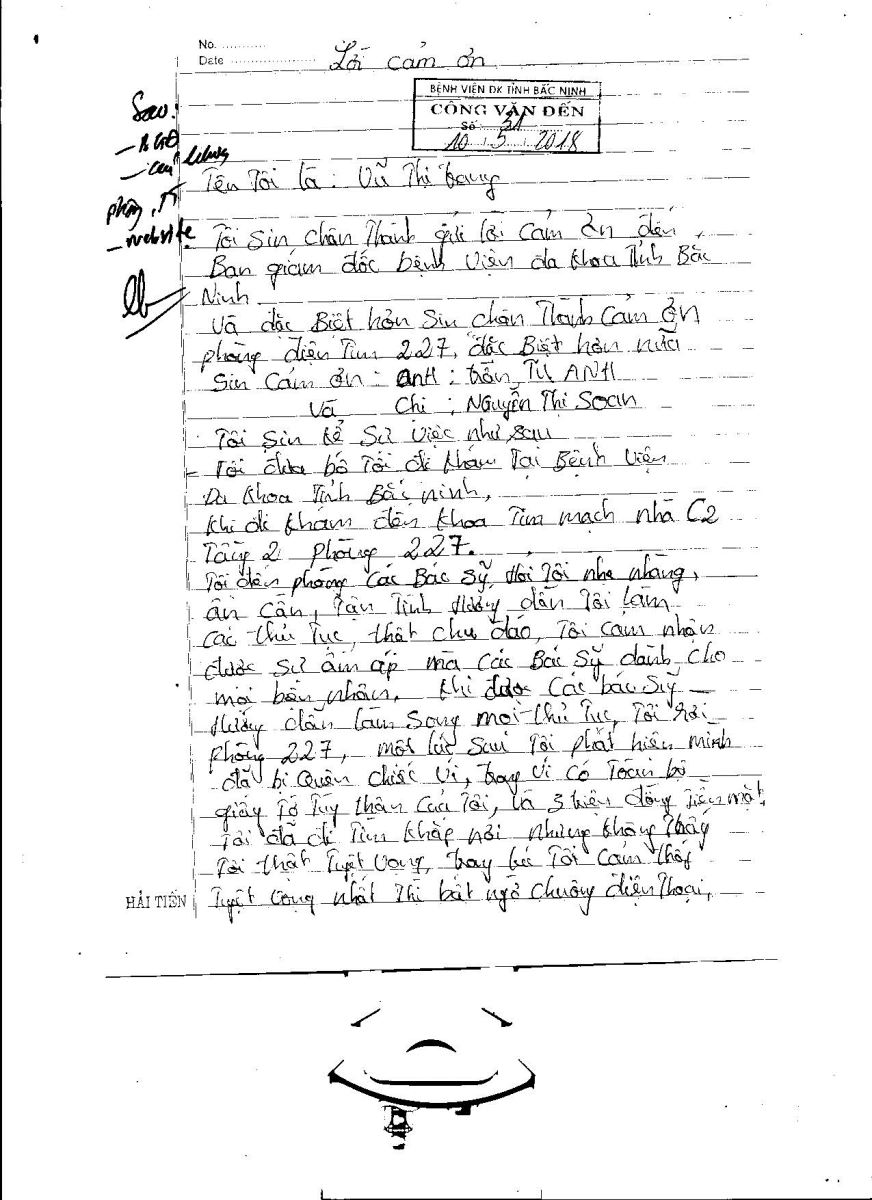 No. ............
Date .....................
Lời cảm ơn
BỆNH VIỆN ĐK TỈNH BẮC NINH
CÔNG VĂN ĐẾN
Số 31
10.5.2018
Sao:
- BGĐ
phòng, TT
- website
Tên Tôi là : Vũ Thị Trang
Tôi Sin chân Thành gửi lời cảm ơn đến
Ban giám đốc bệnh viện đa khoa Tỉnh Bắc
Ninh
Và đặc Biệt hơn Sin chân Thành Cảm ơn
phòng điện Tim 227, đặc Biệt hơn nữa
Sin Cảm ơn : anH : trần TU ANH
Và Chị : NGuyễn Thị Soan
Tôi Sin kể Sự việc như sau
- Tôi đưa bố Tôi đi khám Tại Bệnh viện
Đa khoa Tỉnh Bắc ninh,
khi đi khám đến khoa Tim mạch nhà C2
Tầng 2 phòng 227.
Tôi đến phòng Các Bác Sỹ Hỏi Tôi nhẹ nhàng,
ân Cần, Tận Tình Hướng dẫn Tôi làm
các thủ Tục, thật chu đáo, Tôi cảm nhận
được sự ấm áp mà các Bác Sỹ dành cho
mọi bệnh nhân. Khi được Các bác Sỹ
Hướng dẫn làm Song mọi thủ Tục, Tôi rời
phòng 227, một lúc Sau Tôi phát hiện mình
đã bị Quên chiếc Ví, trong ví có Toàn bộ
giấy Tờ Tùy thân Của Tôi, và 3 triệu đồng Tiền mặt,
Tôi đã đi Tìm khắp nơi nhưng không Thấy
Tôi thật Tuyệt Vọng, trong lúc Tôi Cảm thấy
Tuyệt vọng nhất Thì bất ngờ chuông điện Thoại,
HẢI TIẾN